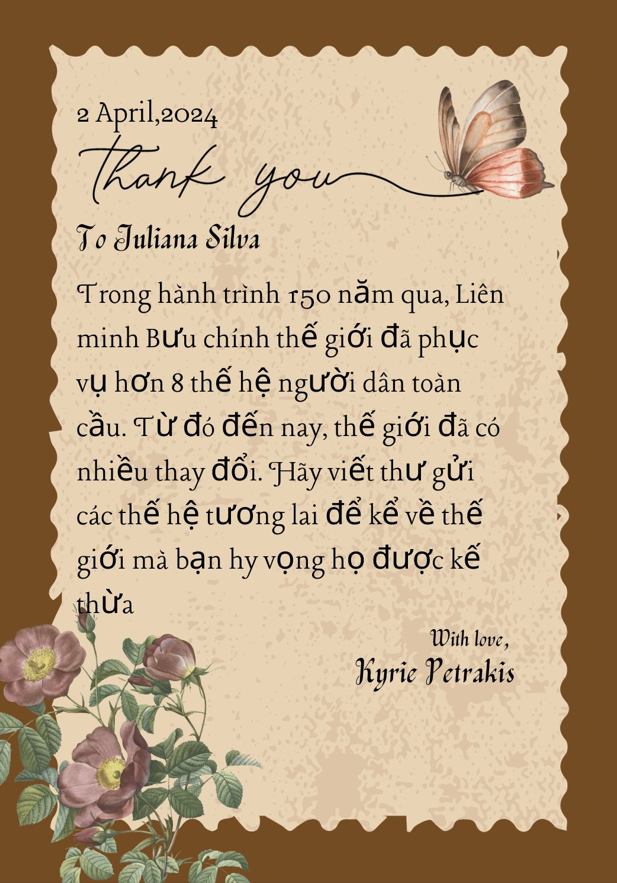 2 April,2024
Thank you
To Juliana Silva
Trong hành trình 150 năm qua, Liên
minh Bưu chính thế giới đã phục
vụ hơn 8 thế hệ người dân toàn
cầu. Từ đó đến nay, thế giới đã có
nhiều thay đổi. Hãy viết thư gửi
các thế hệ tương lai để kể về thế
giới mà bạn hy vọng họ được kế
thừa
With love,
Kyrie Petrakis